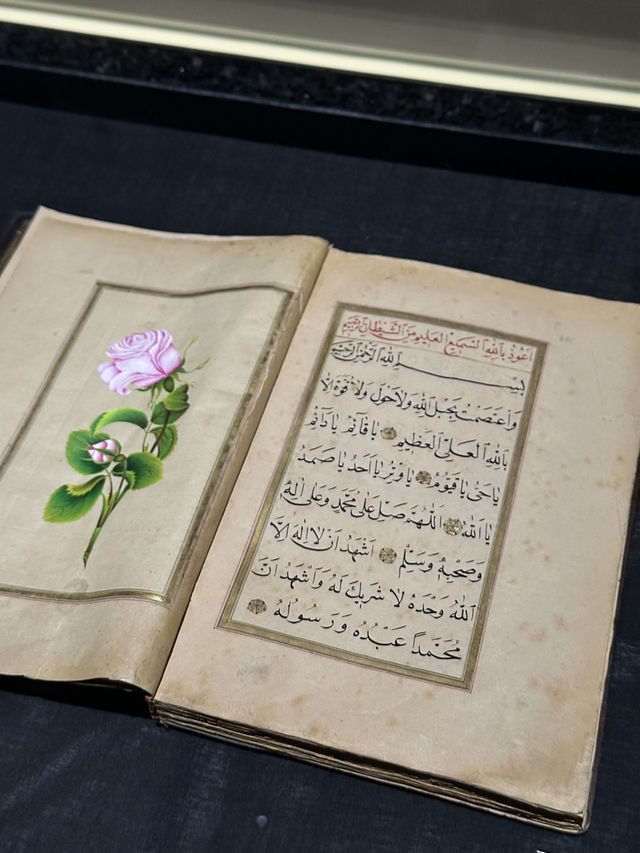 اَعُوذُ بِاللهِ السَّمِيعِ الْعَلِيمِ مِنَ الشَّيْطَانِ الرَّجِيمِ
بِسْمِ اللهِ الرَّحْمٰنِ الرَّحِيمِ
وَاعْتَصَمْتُ بِحَبْلِ اللهِ وَلَا حَوْلَ وَلَا قُوَّةَ اِلَّا
بِاللهِ الْعَلِىِّ الْعَظِيمِ يَا قَآئِمُ يَا دَآئِمُ
يَا حَىُّ يَا قَيُّومُ يَا وِتْرُ يَا اَحَدُ يَا صَمَدُ
يَا اَللهُ اَللّٰهُمَّ صَلِّ عَلٰى مُحَمَّدٍ وَعَلٰى اٰلِهِ
وَصَحْبِهِ وَسَلِّمْ اَشْهَدُ اَنْ لَا اِلٰهَ اِلَّا
اللهُ وَحْدَهُ لَا شَرِيكَ لَهُ وَاَشْهَدُ اَنَّ
مُحَمَّدًا عَبْدُهُ وَرَسُولُهُ